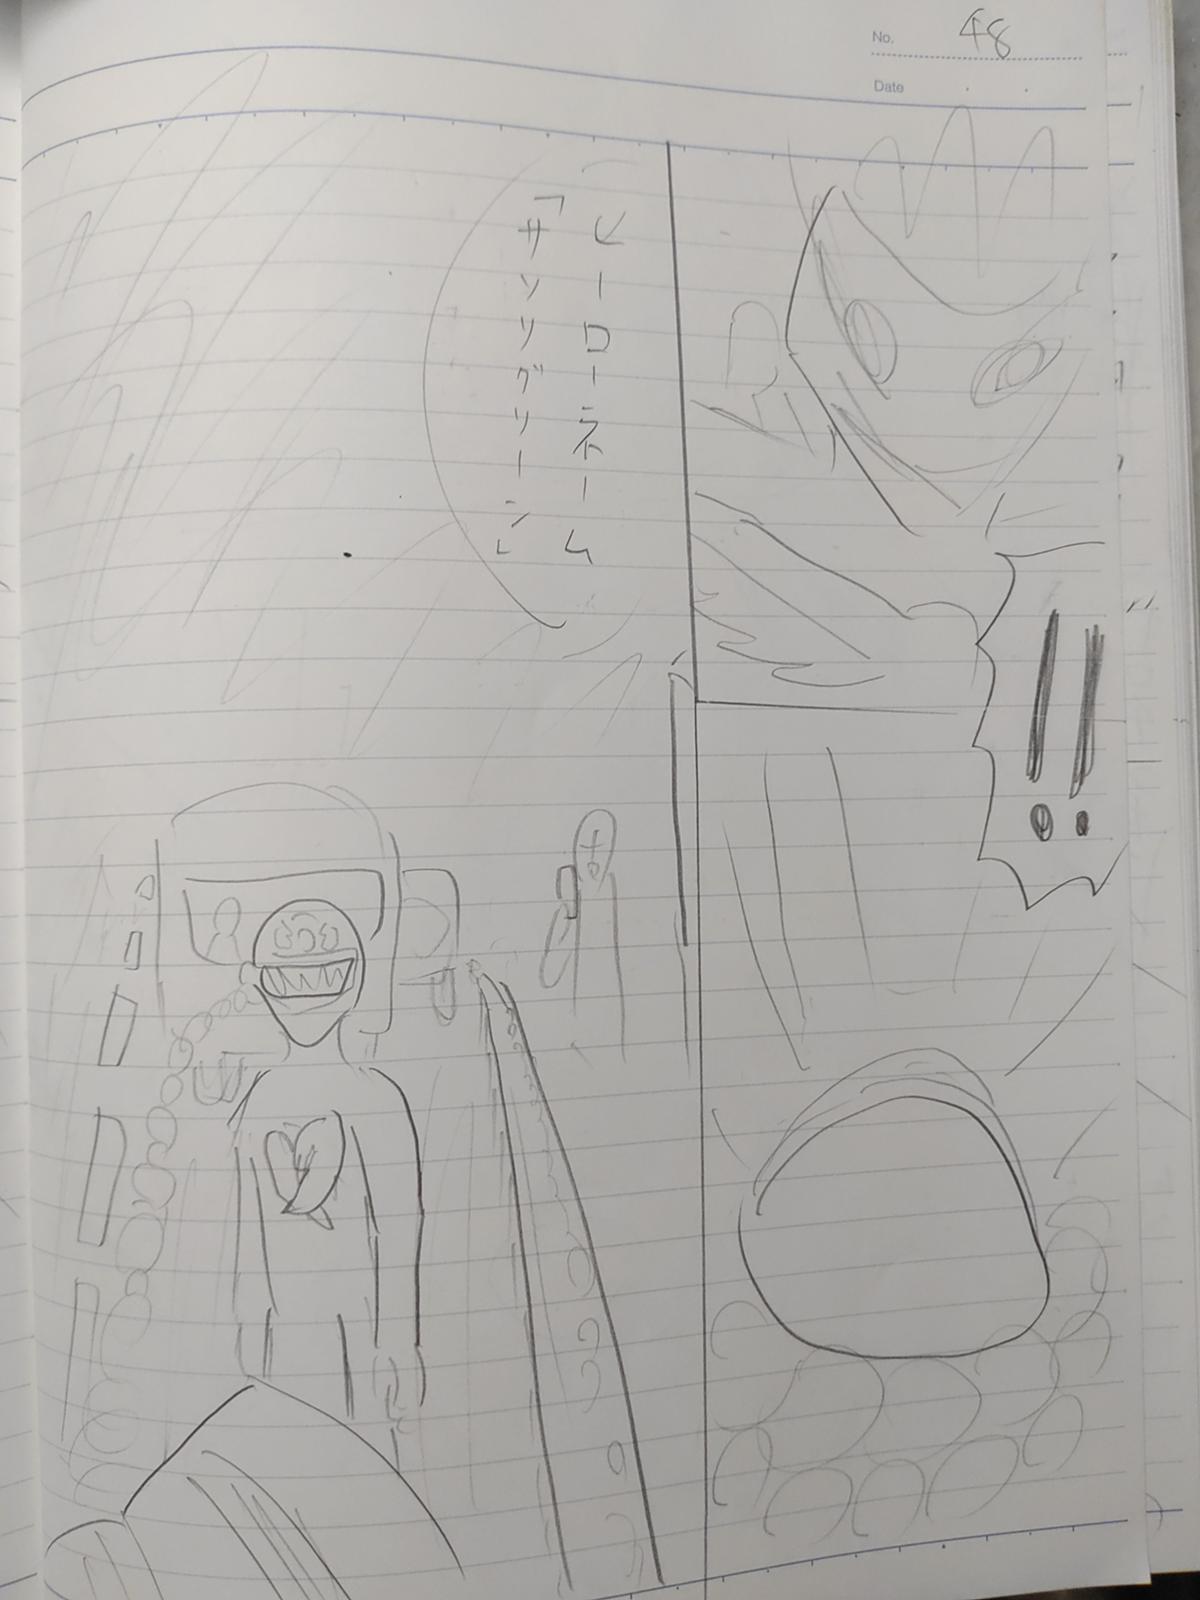 No. 48
Date
!!
ヒーローネーム
「サソリグリーン」